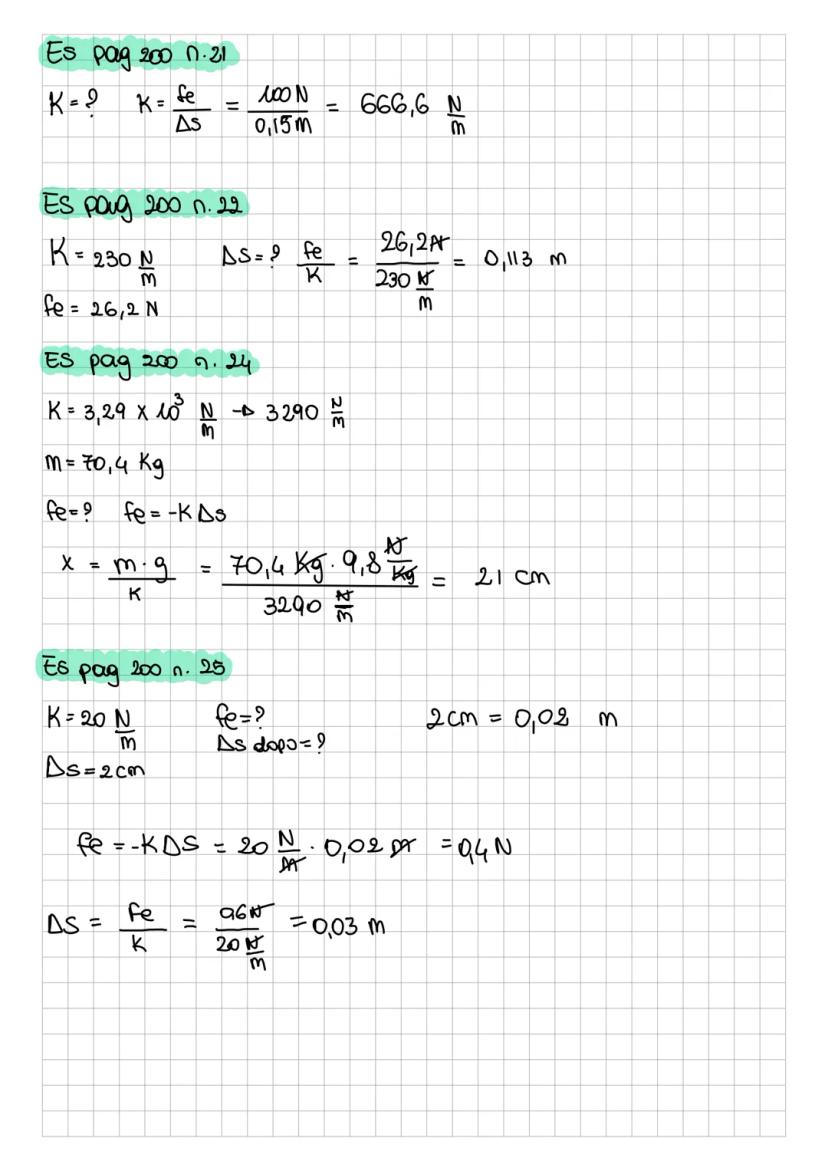 Es pag 200 n.21
K = ? K = fe/Δs = 100 N/0,15 m = 666,6 N/m
ES pag 200 n.22
K = 230 N/m Δs = ? fe/K = 26,2 N/230 N/m = 0,113 m
fe = 26,2 N
ES pag 200 n. 24
K = 3,29 x 10³ N/m → 3290 N/m
m = 70,4 Kg
fe = ? fe = -K Δs
x = m · g/K = 70,4 Kg · 9,8 N/Kg/3290 N/m = 21 cm
Es pag 200 n. 25
K = 20 N/m fe = ? 2 cm = 0,02 m
Δs dopo = ?
Δs = 2 cm
fe = -K Δs = 20 N/m · 0,02 m = 0,4 N
Δs = fe/K = 0,6 N/20 N/m = 0,03 m